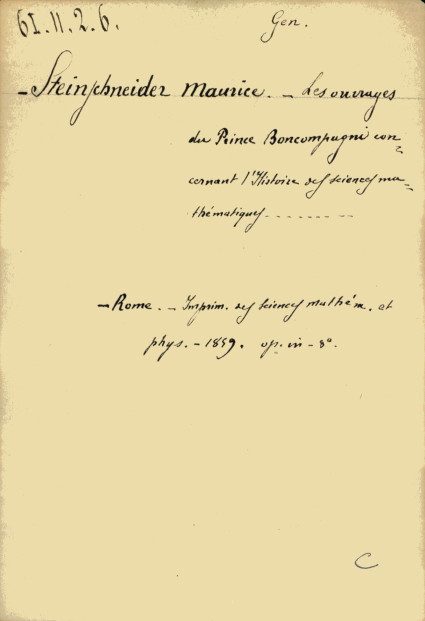 61.11.2.6.
Gen.
- Steinschneider Maurice. - Les ouvrages
du Prince Boncompagni con-
cernant l'Histoire des sciences ma-
thématiques
- Rome. - Imprim. des sciences mathém. et
phys. - 1859. op. in - 8°.
C